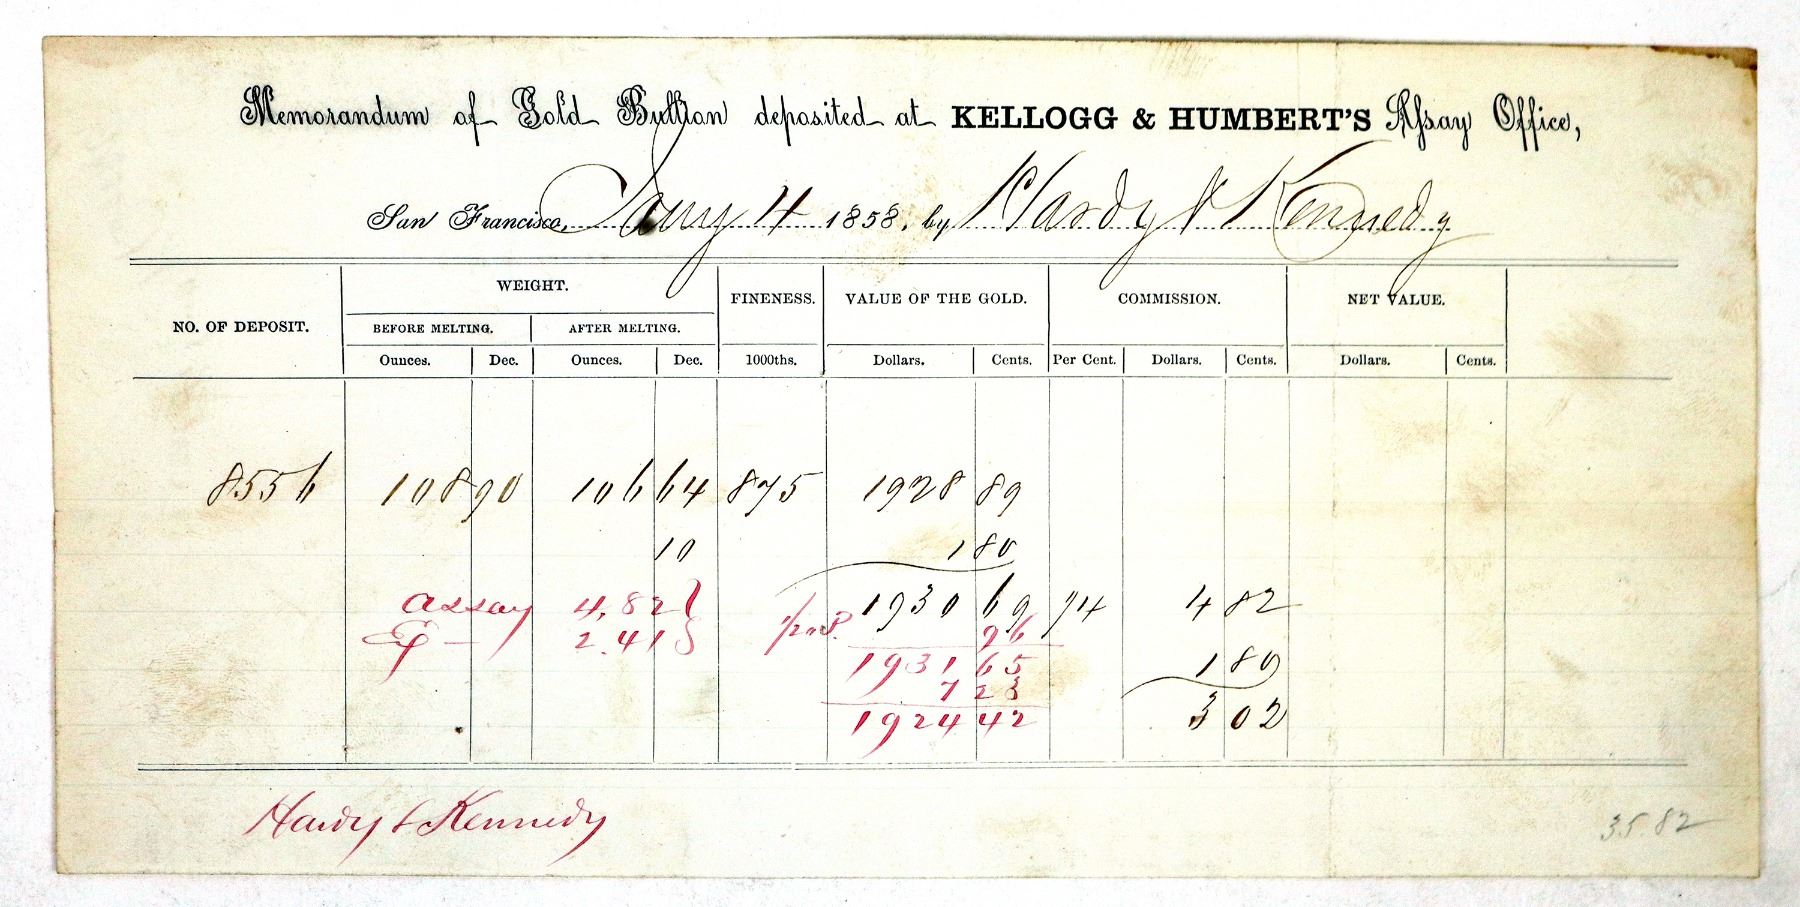 Memorandum of Gold Bullion deposited at KELLOGG & HUMBERT'S Assay Office,
San Francisco, Jany 4 1858, by Hardy & Kennedy
NO. OF DEPOSIT. WEIGHT. FINENESS. VALUE OF THE GOLD. COMMISSION. NET VALUE.
BEFORE MELTING. AFTER MELTING.
Ounces. Dec. Ounces. Dec. 1000ths. Dollars. Cents. Per Cent. Dollars. Cents. Dollars. Cents.
8556 108 90 106 64 875 1928 89
10 1 80
assay 4.82 1930 69 1/4 4 82
2.41 96
1931 65 1 80
7 23
1924 42 3 02
Hardy & Kennedy
35.82